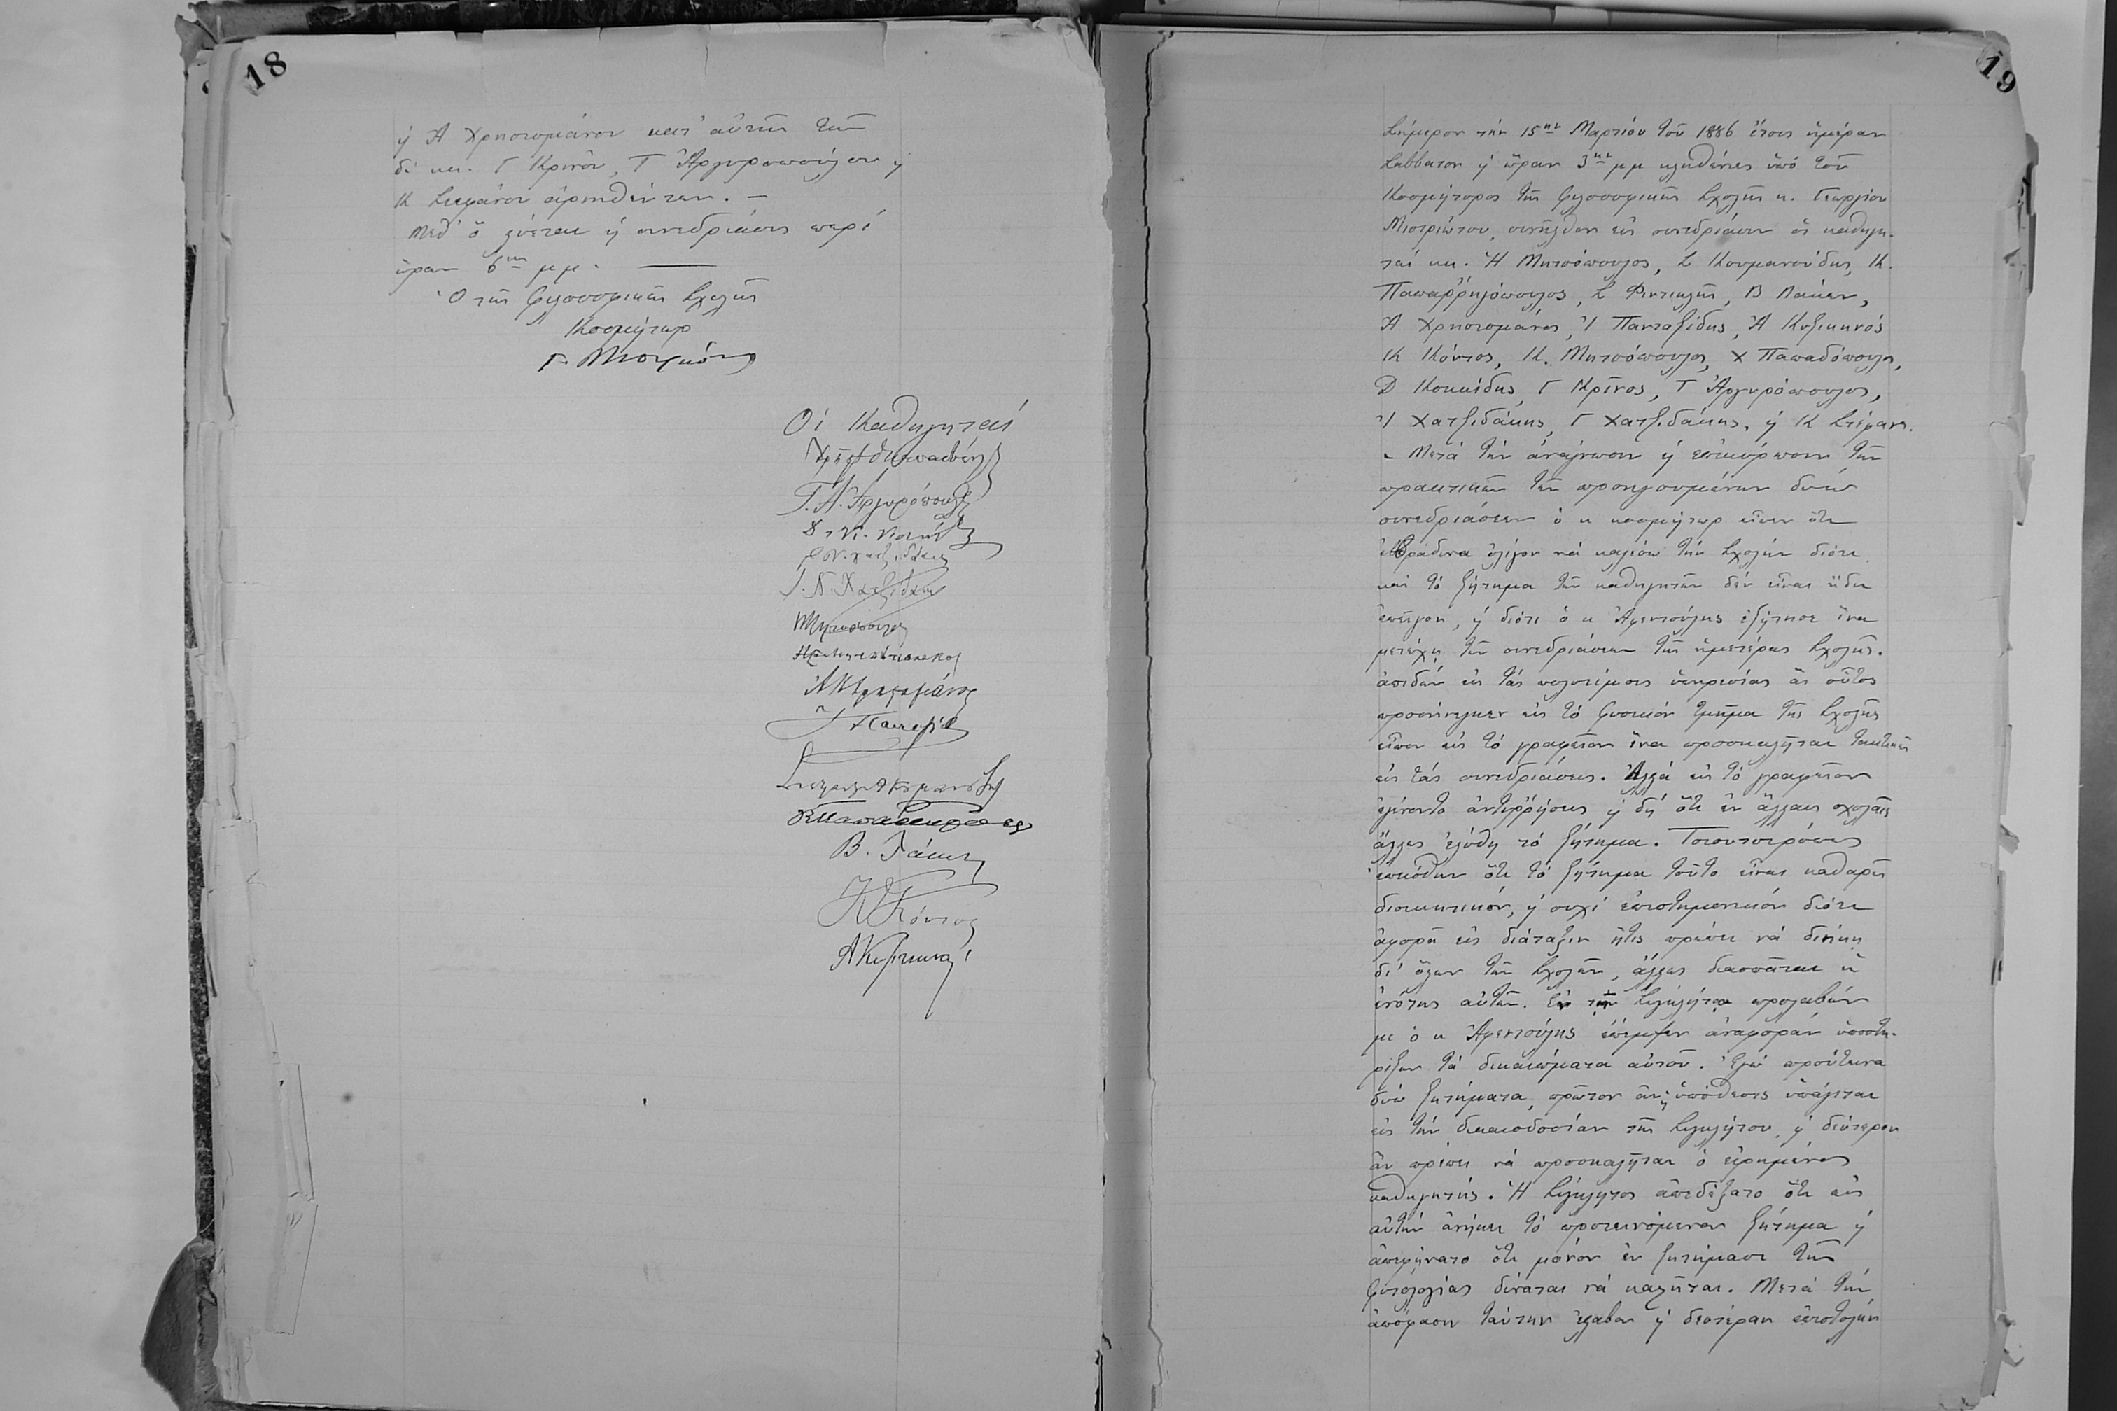 18
ἡ Ἀ Χρηστομάνου κατ' αὐτῆς τῶν
δὲ κκ. Γ Κρίνου, Τ Ἀργυροπούλου ἡ
Κ Στεφάνου ἀρνηθέντων. —
Μεθ' ὃ λύεται ἡ συνεδρίασις περὶ
ὥραν 6ην μμ. —
Ὁ τῆς Φιλοσοφικῆς Σχολῆς
Κοσμήτωρ
Γ. Μιστριώτης
Οἱ Καθηγηταὶ
Τ. Ἀ. Ἀργυρόπουλος
Ἰ. Ν. Χατζιδάκις
Κ Μητσόπουλος
Ἀ Κ Χρηστομάνος
Ἰ Πανταζίδης
Στέφανος Α Κουμανούδης
Κ Παπαρρηγόπουλος
Β. Λάκων
Κ Σ Κόντος
Α Κυζικηνός
19
Σήμερον τὴν 15ην Μαρτίου τοῦ 1886 ἔτους ἡμέραν
Σάββατον ἡ ὥραν 3ην μμ κληθέντες ὑπὸ τοῦ
Κοσμήτορος τῆς Φιλοσοφικῆς Σχολῆς κ. Γεωργίου
Μιστριώτου, συνῆλθον εἰς συνεδρίασιν οἱ καθηγη-
ταὶ κκ. Ἡ Μητσόπουλος, Σ Κουμανούδης, Κ.
Παπαρρηγόπουλος, Σ Φιντικλῆς, Β Λάκων,
Ἀ Χρηστομάνος, Ἰ Πανταζίδης, Ἀ Κυζικηνός
Κ Κόντος, Κ. Μητσόπουλος, Χ Παπαδόπουλος,
Δ Κοκκίδης, Γ Κρίνος, Τ Ἀργυρόπουλος,
Ἰ Χατζιδάκης, Γ Χατζιδάκης, ἡ Κ Στέφανος.
Μετὰ τὴν ἀνάγνωσιν ἡ ἐπικύρωσιν τῶν
πρακτικῶν τῶν προηγουμένων δύω
συνεδριάσεων ὁ κ κοσμήτωρ εἶπεν ὅτι
ἐβράδυνα ὀλίγον νὰ καλέσω τὴν Σχολὴν διότι
καὶ τὸ ζήτημα τῶν καθηγητῶν δὲν εἶναι ἤδη
ἐπεῖγον, ἡ διότι ὁ κ Ἀφεντούλης ἐζήτησε ἵνα
μετέχῃ τῶν συνεδριάσεων τῆς ἡμετέρας Σχολῆς.
ἀπιδὼν εἰς τὰς πολυτίμους ὑπηρεσίας ἃς οὗτος
προσήνεγκεν εἰς τὸ Φυσικὸν τμῆμα τῆς Σχολῆς
εἶπον εἰς τὸ γραφεῖον ἵνα προσκαλῆται τακτικῶς
εἰς τὰς συνεδριάσεις. Ἀλλὰ εἰς τὸ γραφεῖον
ἐγίνοντο ἀντιρρήσεις ἡ δὴ ὅτι ἐν ἄλλαις σχολαῖς
ἄλλως ἐλύθη τὸ ζήτημα. Τοιουτοτρόπως
ἐπείσθην ὅτι τὸ ζήτημα τοῦτο εἶναι καθαρῶς
διοικητικόν, ἡ οὐχὶ ἐπιστημονικόν διότι
ἀφορᾷ εἰς διάταξιν ἥτις πρέπει νὰ διήκῃ
δι' ὅλων τῶν Σχολῶν, ἄλλως διασπᾶται ἡ
ἑνότης αὐτῶν. Ἐν τῇ Συγκλήτῳ προλαβών
με ὁ κ Ἀφεντούλης ἔπεμψεν ἀναφορὰν ὑποστη-
ρίζων τὰ δικαιώματα αὐτοῦ. Ἐγὼ προὔτεινα
δύω ζητήματα, πρῶτον ἂν ἡ ὑπόθεσις ὑπάγεται
εἰς τὴν δικαιοδοσίαν τῆς Συγκλήτου, ἡ δεύτερον
ἂν πρέπει νὰ προσκαλῆται ὁ εἰρημένος
καθηγητής. Ἡ Σύγκλητος ἀπεδέξατο ὅτι εἰς
αὐτὴν ἀνήκει τὸ προτεινόμενον ζήτημα ἡ
ἀπεφήνατο ὅτι μόνον ἐν ζητήμασι τῆς
Φυτολογίας δύναται νὰ καλῆται. Μετὰ τὴν
ἀπόφασιν ταύτην ἔλαβον ἡ δευτέραν ἐπιστολὴν